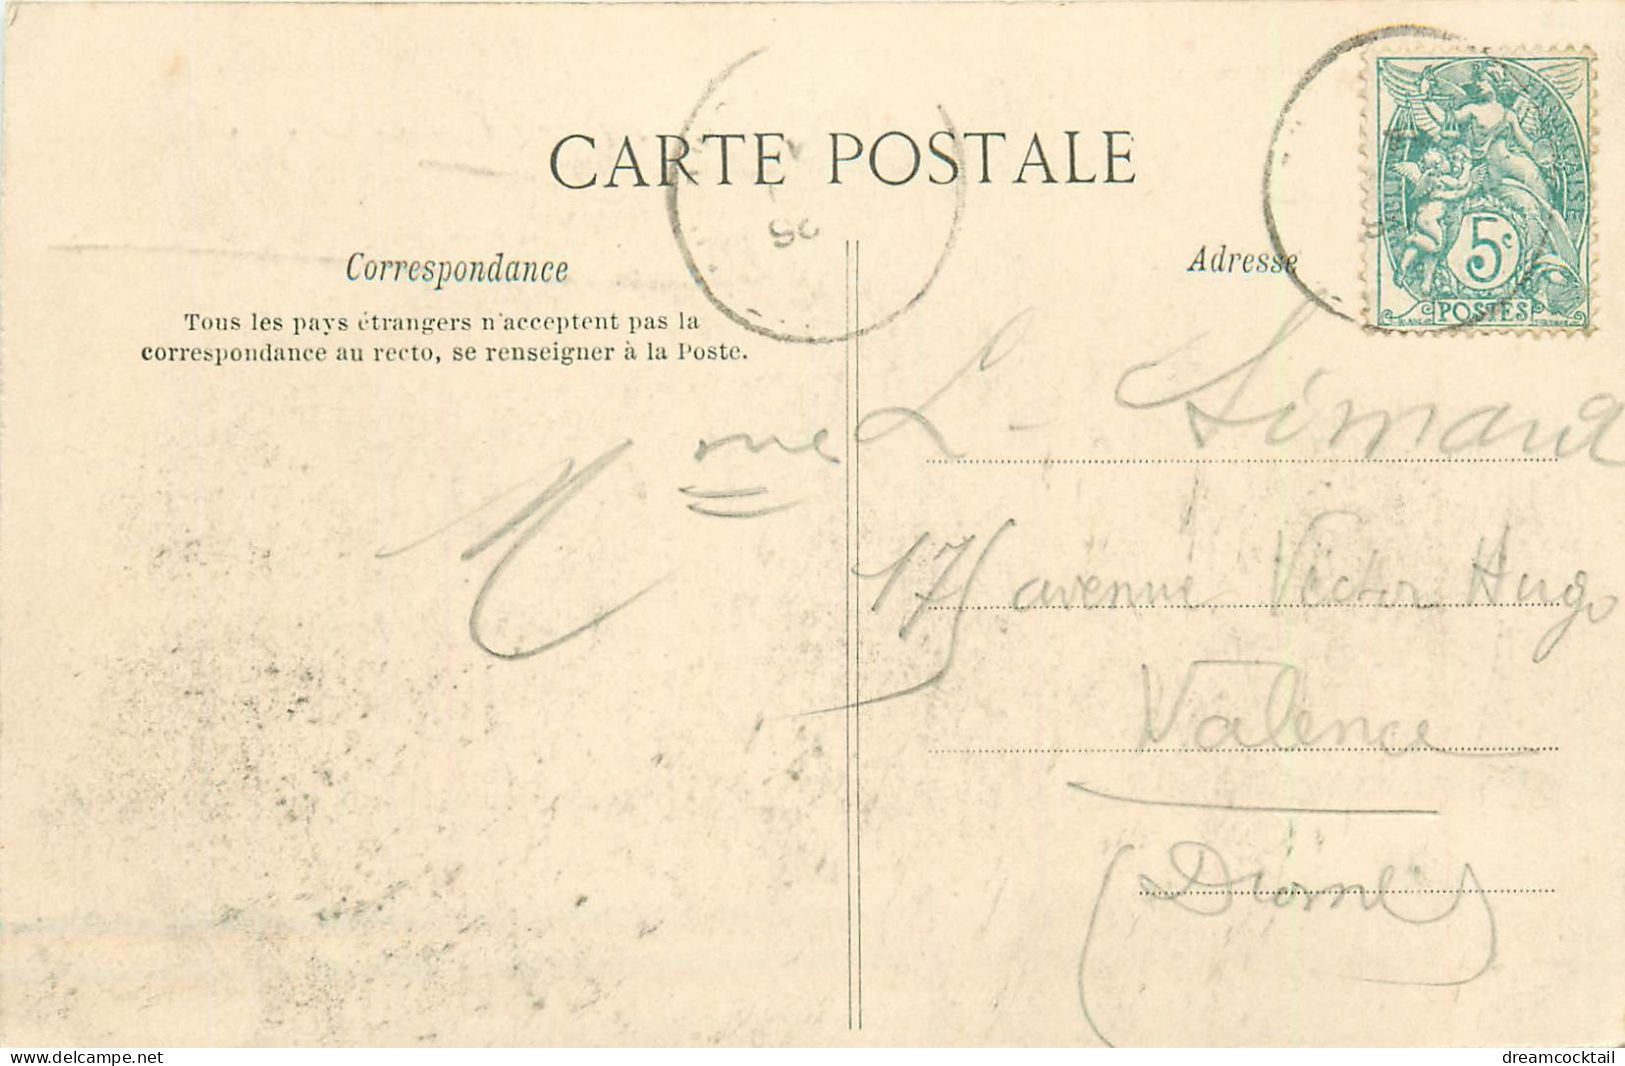 CARTE POSTALE
Correspondance
Tous les pays étrangers n'acceptent pas la
correspondance au recto, se renseigner à la Poste.
Adresse
5c
POSTES
Mme L. Simand
175 avenue Victor Hugo
Valence
(Drome)
www.delcampe.net
dreamcocktail